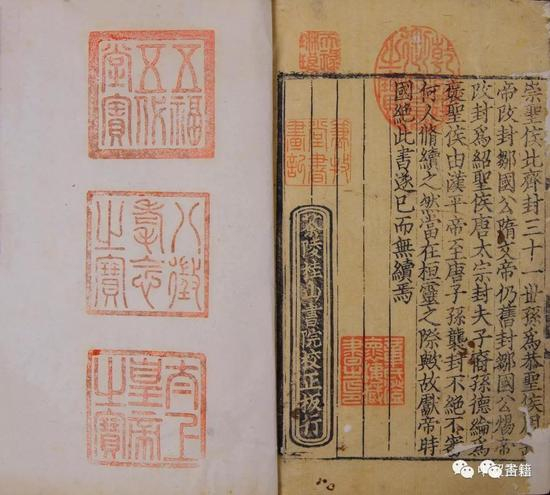 崇聖侯北齊封三十一世孫爲恭聖侯
帝改封鄒國公隋文帝仍舊封鄒國公煬帝
改封爲紹聖侯唐太宗封夫子裔孫德綸爲
褒聖侯由漢平帝至唐子孫襲封不絕不審
何人脩續之然當在桓靈之際歟故獻帝時
國絕此書遂已而無續焉
茶陵桂山書院校正板行
乾隆御覽之寶
天祿琳琅
兼牧堂書畫記
五福五代堂寶
八徵耄念之寶
太上皇帝之寶